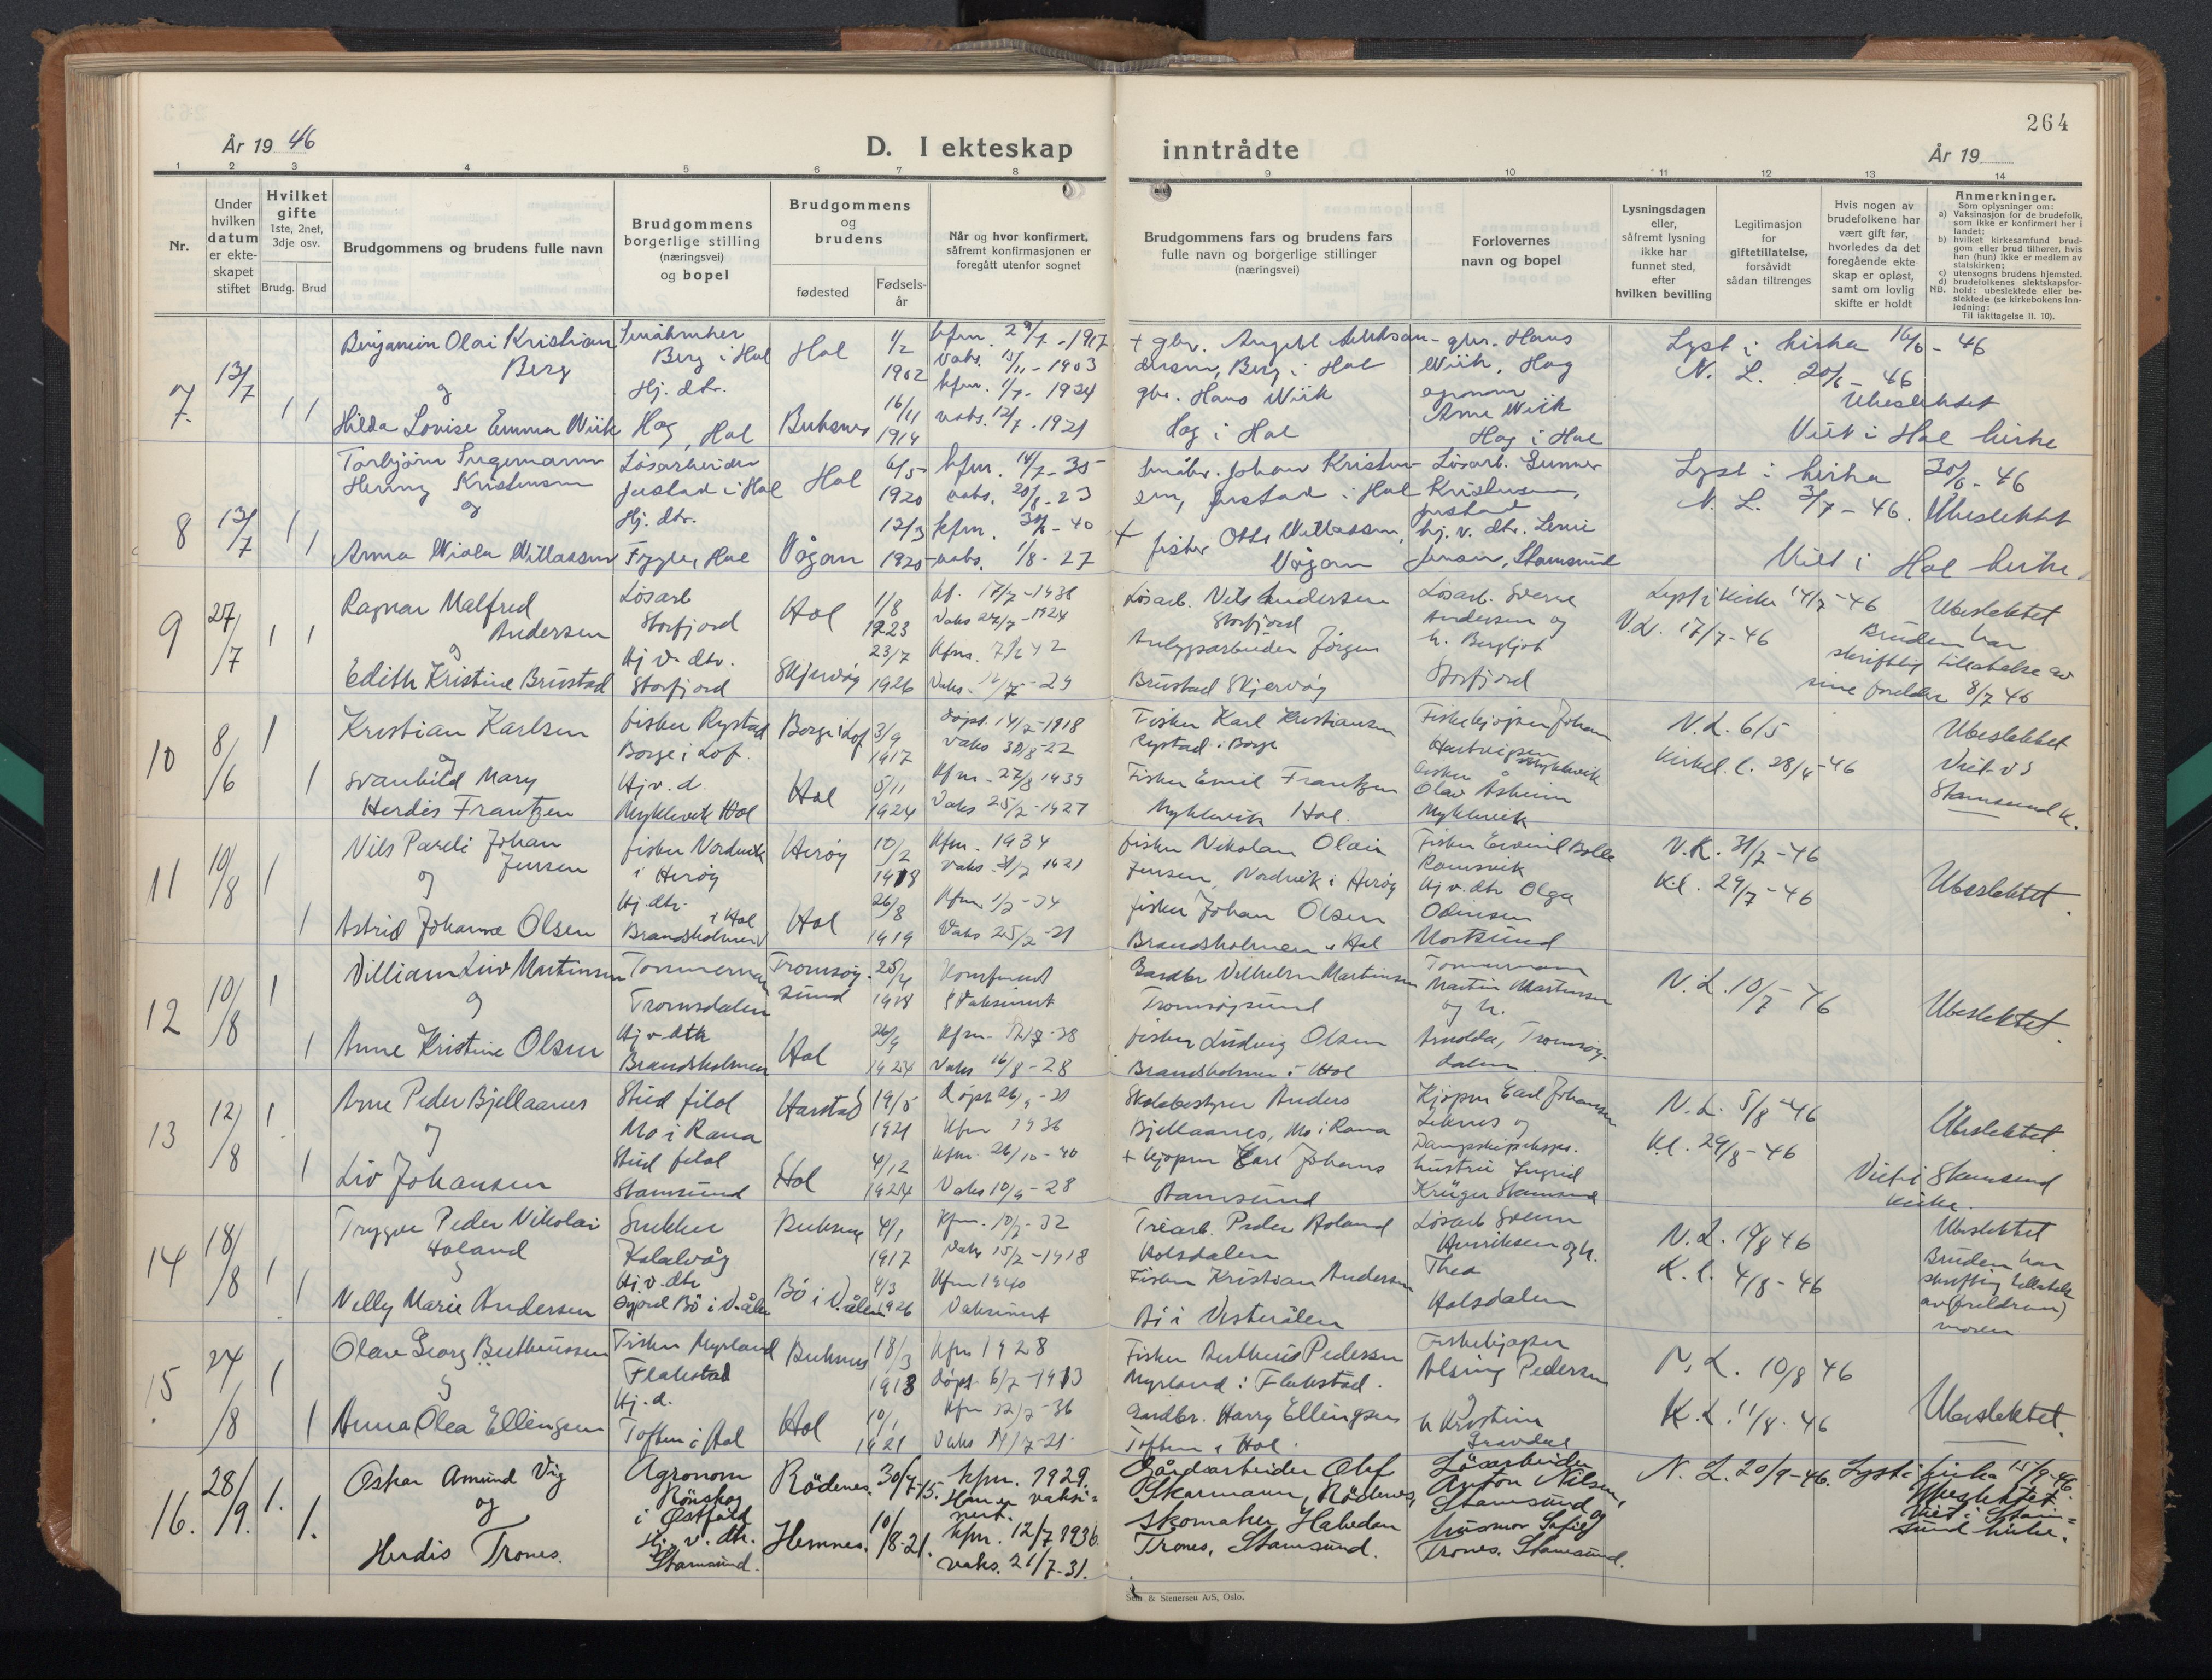 264
År 19 46
D. I ekteskap inntrådte
År 19
1 2 3 4 5 6 7 8 9 10 11 12 13 14
Nr.
Under hvilken datum er ekte-skapet stiftet
Hvilket gifte 1ste, 2net, 3dje osv.
Brudg. Brud
Brudgommens og brudens fulle navn
Brudgommens borgerlige stilling (næringsvei) og bopel
Brudgommens og brudens
fødested
Fødsels-år
Når og hvor konfirmert, såfremt konfirmasjonen er foregått utenfor sognet
Brudgommens fars og brudens fars fulle navn og borgerlige stillinger (næringsvei)
Forlovernes navn og bopel
Lysningsdagen eller, såfremt lysning ikke har funnet sted, efter hvilken bevilling
Legitimasjon for giftetillatelse, forsåvidt sådan tiltrenges
Hvis nogen av brudefolkene har vært gift før, hvorledes da det foregående ekte-skap er opløst, samt om lovlig skifte er holdt
Anmerkninger.
Som oplysninger om:
a) Vaksinasjon for de brudefolk, som ikke er konfirmert her i landet;
b) hvilket kirkesamfund brud-gom eller brud tilhører, hvis han (hun) ikke er medlem av statskirken;
c) utensogns brudens hjemsted.
d) brudefolkenes slektskapsfor-hold: ubeslektede eller be-slektede (se kirkebokens inn-ledning;
NB.
Til iakttagelse II. 10).
7. 13/7 1 1
Benjamin Olai Kristian
Berg
og
Hilda Lovise Emma Wiik
Småbruker
Berg i Hol
Hj. dtr.
Hag, Hol
Hol
Buksnes
1/2 1902
16/11 1914
kfm. 29/7 - 1917
vaks. 15/11 - 1903
kfm. 1/7 - 1924
vaks. 12/7 - 1921
+ gbr.
Berg i Hol
gbr. Hans Wiik
Hag i Hol
gbr. Hans
Wiik, Hag
Arne Wiik
Hag i Hol
Lyst i kirka 16/6 - 46
N. L. 20/6 - 46
Ubeslektet
Viet i Hol kirke
8 13/7 1 1
Torbjørn Ingemann
Henry Kristensen
og
Anna Viola Willassen
Løsarbeider
Justad i Hol
Hj. dtr.
Fygle, Hol
Hol
Vågan
6/5 1920
12/3 1925
kfm. 14/7 - 35
vaks. 20/8 - 23
kfm. - 40
vaks. 1/8 - 27
småbr. Johan Kristen-
sen, Justad i Hol
+ fisker Otto Willassen,
Vågan
Løsarb. Gunnar
Kristensen,
Justad
hj. v. dtr. Lovise
Jensen, Stamsund
Lyst i kirka 30/6 - 46
N. L. 3/7 - 46. Ubeslektet
Viet i Hol kirke
9 27/7 1 1
Ragnar Malfred
Andersen
og
Edith Kristine Brustad
Løsarb
Storfjord
Hj v. dtr.
Storfjord
Hol
Skjervøy
1/8 1923
23/7 1926
kf. 17/7 - 1938
Vaks 24/7 - 1924
Kfm. 7/6 42
Vaks. 12/7 - 29
Løsarb. Nils Andersen
Storfjord
Anleggsarbeider Jørgen
Brustad Skjervøy
Løsarb. Sverre
Andersen og
h. Bergljot
Storfjord
Lyst i kirke 14/7 - 46
N.L. 17/7 - 46
Ubeslektet
Bruden har
skriftlig tillatelse av
sine foreldre 8/7 46
10 8/6 1 1
Kristian Karlsen
og
Svanhild Mary
Herdis Frantzen
fisker Rystad
Borge i Lof.
Hj v. d.
Myklevik Hol
Borge i Lof
Hol
3/9 1917
5/11 1924
døpt. 14/2 - 1918
Vaks 30/8 - 22
Kfm. 27/8 1939
Vaks 25/2 - 1927
Fisker Karl Kristiansen
Rystad i Borge
Fisker Emil Frantzen
Myklevik Hol.
Fiskekjøper Johan
Hartvigsen Myklevik
fisker
Olav Åsheim
Myklevik
N.L. 6/5
Kirkel. l. 28/4 - 46
Ubeslektet
Viet v
Stamsund K.
11 10/8 1 1
Nils Pareli Johan
Jensen
og
Astrid Johanna Olsen
fisker Nordvik
i Herøy
Hj. dtr.
i Hol
Brandsholmen
Herøy
Hol
10/2 1918
26/8 1919
Kfm. 1934
Vaks 31/7 1921
Kfm 1/7 - 34
Vaks 25/2 - 21
fisker Nikolai Olai
Jensen, Nordvik i Herøy
fisker Johan Olsen
Brandsholmen i Hol
Fisker Bolle
Ramsvik
Hj v. dtr Olga
Odinsen
Mortsund
N.K. 31/7 - 46
K.l. 29/7 - 46
Ubeslektet.
12 10/8 1 1
Villiam Liv Martinsen
og
Anne Kristine Olsen
Tømmerman
Tromsdalen
Hj v. dtr
Brandsholmen
Tromsøy-
sund
Hol
25/4 1918
26/9 1924
Konfirmert
& Vaksinert
Kfm. - 38
Vaks 16/8 - 28
Gardbr Vilhelm Martinsen
Tromsøysund
fisker Ludvig Olsen
Brandsholmen i Hol
Tømmermann
Martin Martinsen
og h.
Arnolda, Tromsøy-
dalen
N.L. 10/7 - 46
Ubeslektet.
13 12/8 1 1
Arne Peder Bjellaanes
og
Liv Johansen
Stud filol
Mo i Rana
Stud filol
Stamsund
Harstad
Hol
19/5 1921
4/12 1924
døpt 26/9 - 21
Kfm 1936
Kfm. 26/10 - 40
Vaks 10/9 - 28
Skolebestyrer Anders
Bjellaanes, Mo i Rana
+ kjøpm Carl Johans
Stamsund
Kjøpm Earl Johansen
Leknes og
Dampskipseksp.
hustru Ingrid
Krüger Stamsund
N.L. 5/8 - 46
K.l. 29/8 - 46
Ubeslektet.
Viet i Stamsund
kirke.
14 18/8 1 1
Trygve Peder Nikolai
Holand
og
Nelly Marie Andersen
Snekker
Kalalvåg
Hj. v. dtr
Bø i V.ålen
Buksnes
Bø i V.ålen
4/1 1917
4/3 1926
Kfm. 10/7 - 32
Vaks 15/2 - 1918
Kfm 1940
Vaksinert
Trearb. Peder Holand
Holsdalen
Fisker Kristian Andersen
Bø i Vesterålen
Løsarb Svenn
Henriksen og h.
Thea
Holsdalen
N.L. 46
K.l. 4/8 - 46
Ubeslektet
Bruden har
skriftlig tillatelse
av (foreldrene)
moren
15. 24/8 1 1
Olav Georg Berthinussen
og
Anna Olea Ellingsen
Fisker Myrland
Flakstad
Hj. d.
Toften i Hol
Buksnes
Hol
18/3 1913
10/1 1921
Kfm 1928
døpt. 6/7 - 1913
Kfm 12/7 - 36
Vaks 14/7 - 21
Fisker Bertheus Pedersen
Myrland i Flakstad.
Gardbr. Harry Ellingsen
Toften i Hol.
Fiskekjøper
Alsing Pedersen
og
h Kristine
Gravdal
N. L. 10/8 46
K.L. 11/8. 46
Ubeslektet.
16. 28/9. 1. 1.
Oskar Amund Vig
og
Herdis Trones.
Agronom
Rönskog
i Østfold
Hj. v. dtr.
Stamsund.
Rödenes.
Hemnes.
30/7-15.
10/8-21.
kfm. 1929.
Han er vaksi=
nert.
kfm. 12/7 1936.
vaks. 21/7-31.
Gårdarbeider Olaf
Skarmann, Rödenes,
skomaker Habedan
Trones, Stamsund.
Lösarbeider
Anton Nilsen,
Stamsund og
husmor Sofie
Trones, Stamsund.
N. L. 20/9-46. Lyst i kirka 15/9-46.
Ubeslektet.
Viet i Stam=
sund kirke.
Sem & Stenersen A/S, Oslo.